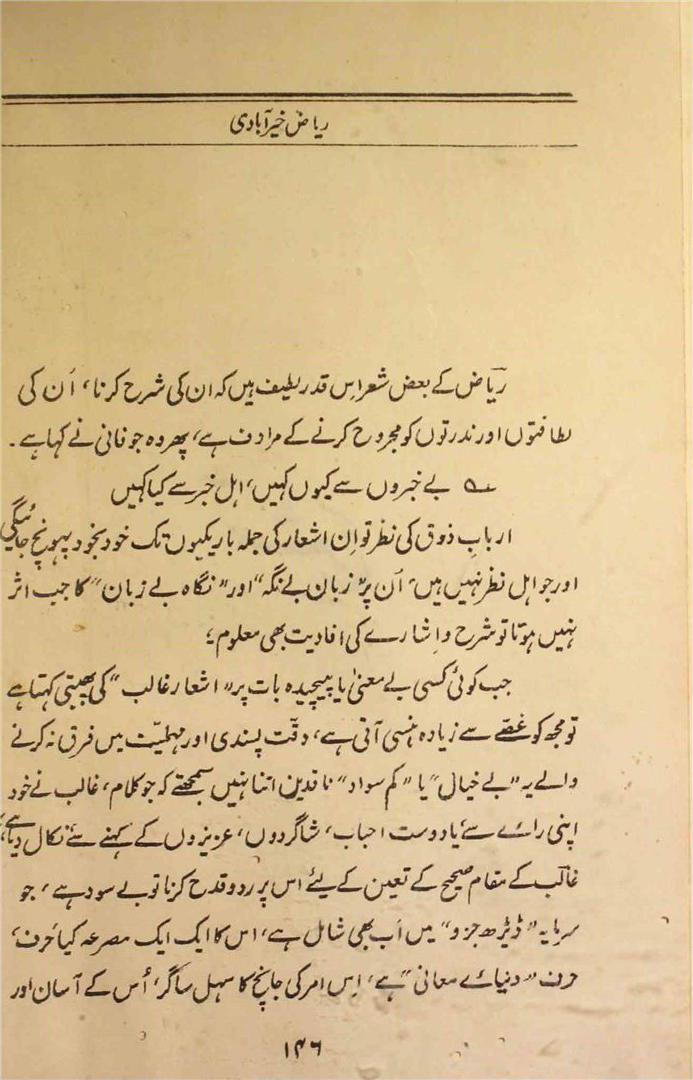 ریاض خیرآبادی
ریاض کے بعض شعر اِس قدر لطیف ہیں کہ ان کی شرح کرنا، اُن کی
لطافتوں اور ندرتوں کو مجروح کرنے کے مرادف ہے، پھر وہ جو فانی نے کہا ہے۔
؎ بے خبروں سے کیوں کہیں، اہل خبر سے کیا کہیں
اربابِ ذوق کی نظر تو اِن اشعار کی جملہ باریکیوں تک خود بخود پہونچ جائیگی
اور جو اہل نظر نہیں ہیں، اُن پر "زبان بے نگہ" اور "نگاہ بے زبان" کا جب اثر
نہیں ہوتا تو شرح و اِشارے کی افادیت بھی معلوم؛
جب کوئی کسی بے معنیٰ یا پیچیدہ بات پر "اشعار غالب" کی پھبتی کہتا ہے
تو مجھ کو غصّے سے زیادہ ہنسی آتی ہے، دقّت پسندی اور مہملیّت میں فرق نہ کرنے
والے یہ "بے خیال" یا "کم سواد" ناقدین اتنا نہیں سمجھتے کہ جو کلام، غالب نے خود
اپنی رائے سے، یا دوست احباب، شاگردوں، عزیزوں کے کہنے سے نکال دیا ہے،
غالب کے مقام صحیح کے تعین کے لیئے اس پر ردو قدح کرنا تو بے سود ہے، جو
سرمایہ "ڈیڑھ جزو" میں اَب بھی شامل ہے، اس کا ایک ایک مصرعہ کیا، حرف،
حرف "دنیائے معانی" ہے، اِس امر کی جانچ کا سہل سا گُر، اُس کے آسان اور
۱۴۶